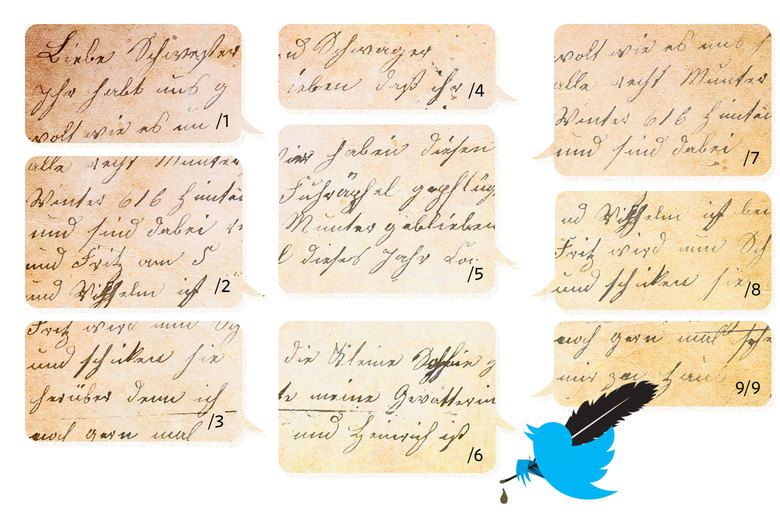 Liebe Schwester
Ihr habt uns g
wolt wie es un /1
alle recht Munter
Winter 616
und sind dabei
und Fritz am 5
und Wilhelm ist /2
Fritz wird nun
und schicken sie
herüber denn ich
noch gern mal /3
d Schwager
ieben daß ihr /4
wir haben diesen
gepflüg
Munter geblieben
dieses Jahr /5
die Kleine Sophie g
te meine Gevatterin
und Heinrich ist /6
wolt wie es uns
alle recht Munter
Winter 616
und sind dabei /7
nd Wilhelm ist bei
Fritz wird nun Sch
und schicken sie /8
noch gern mal
mir zu Haus 9/9